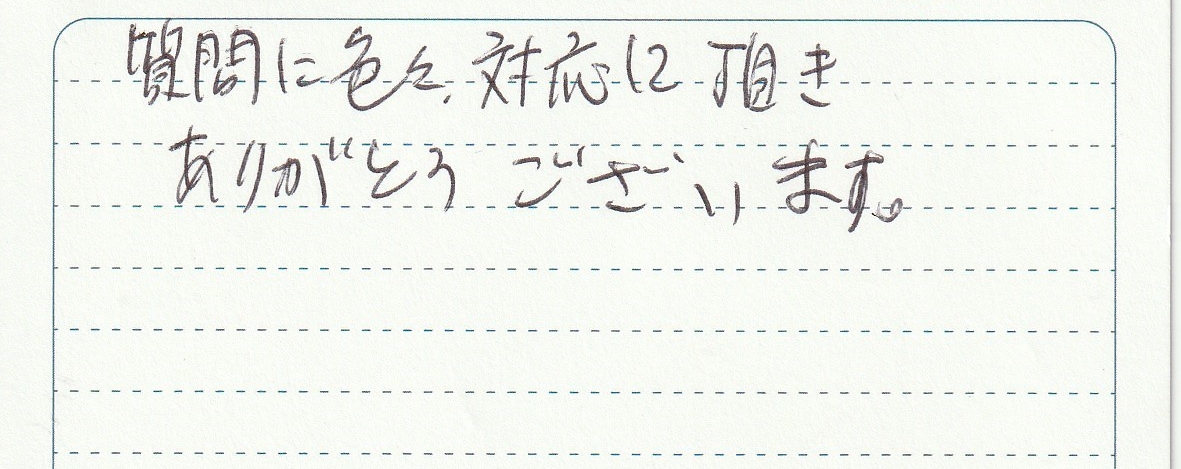 質問に色々、対応に頂き
ありがとうございます。